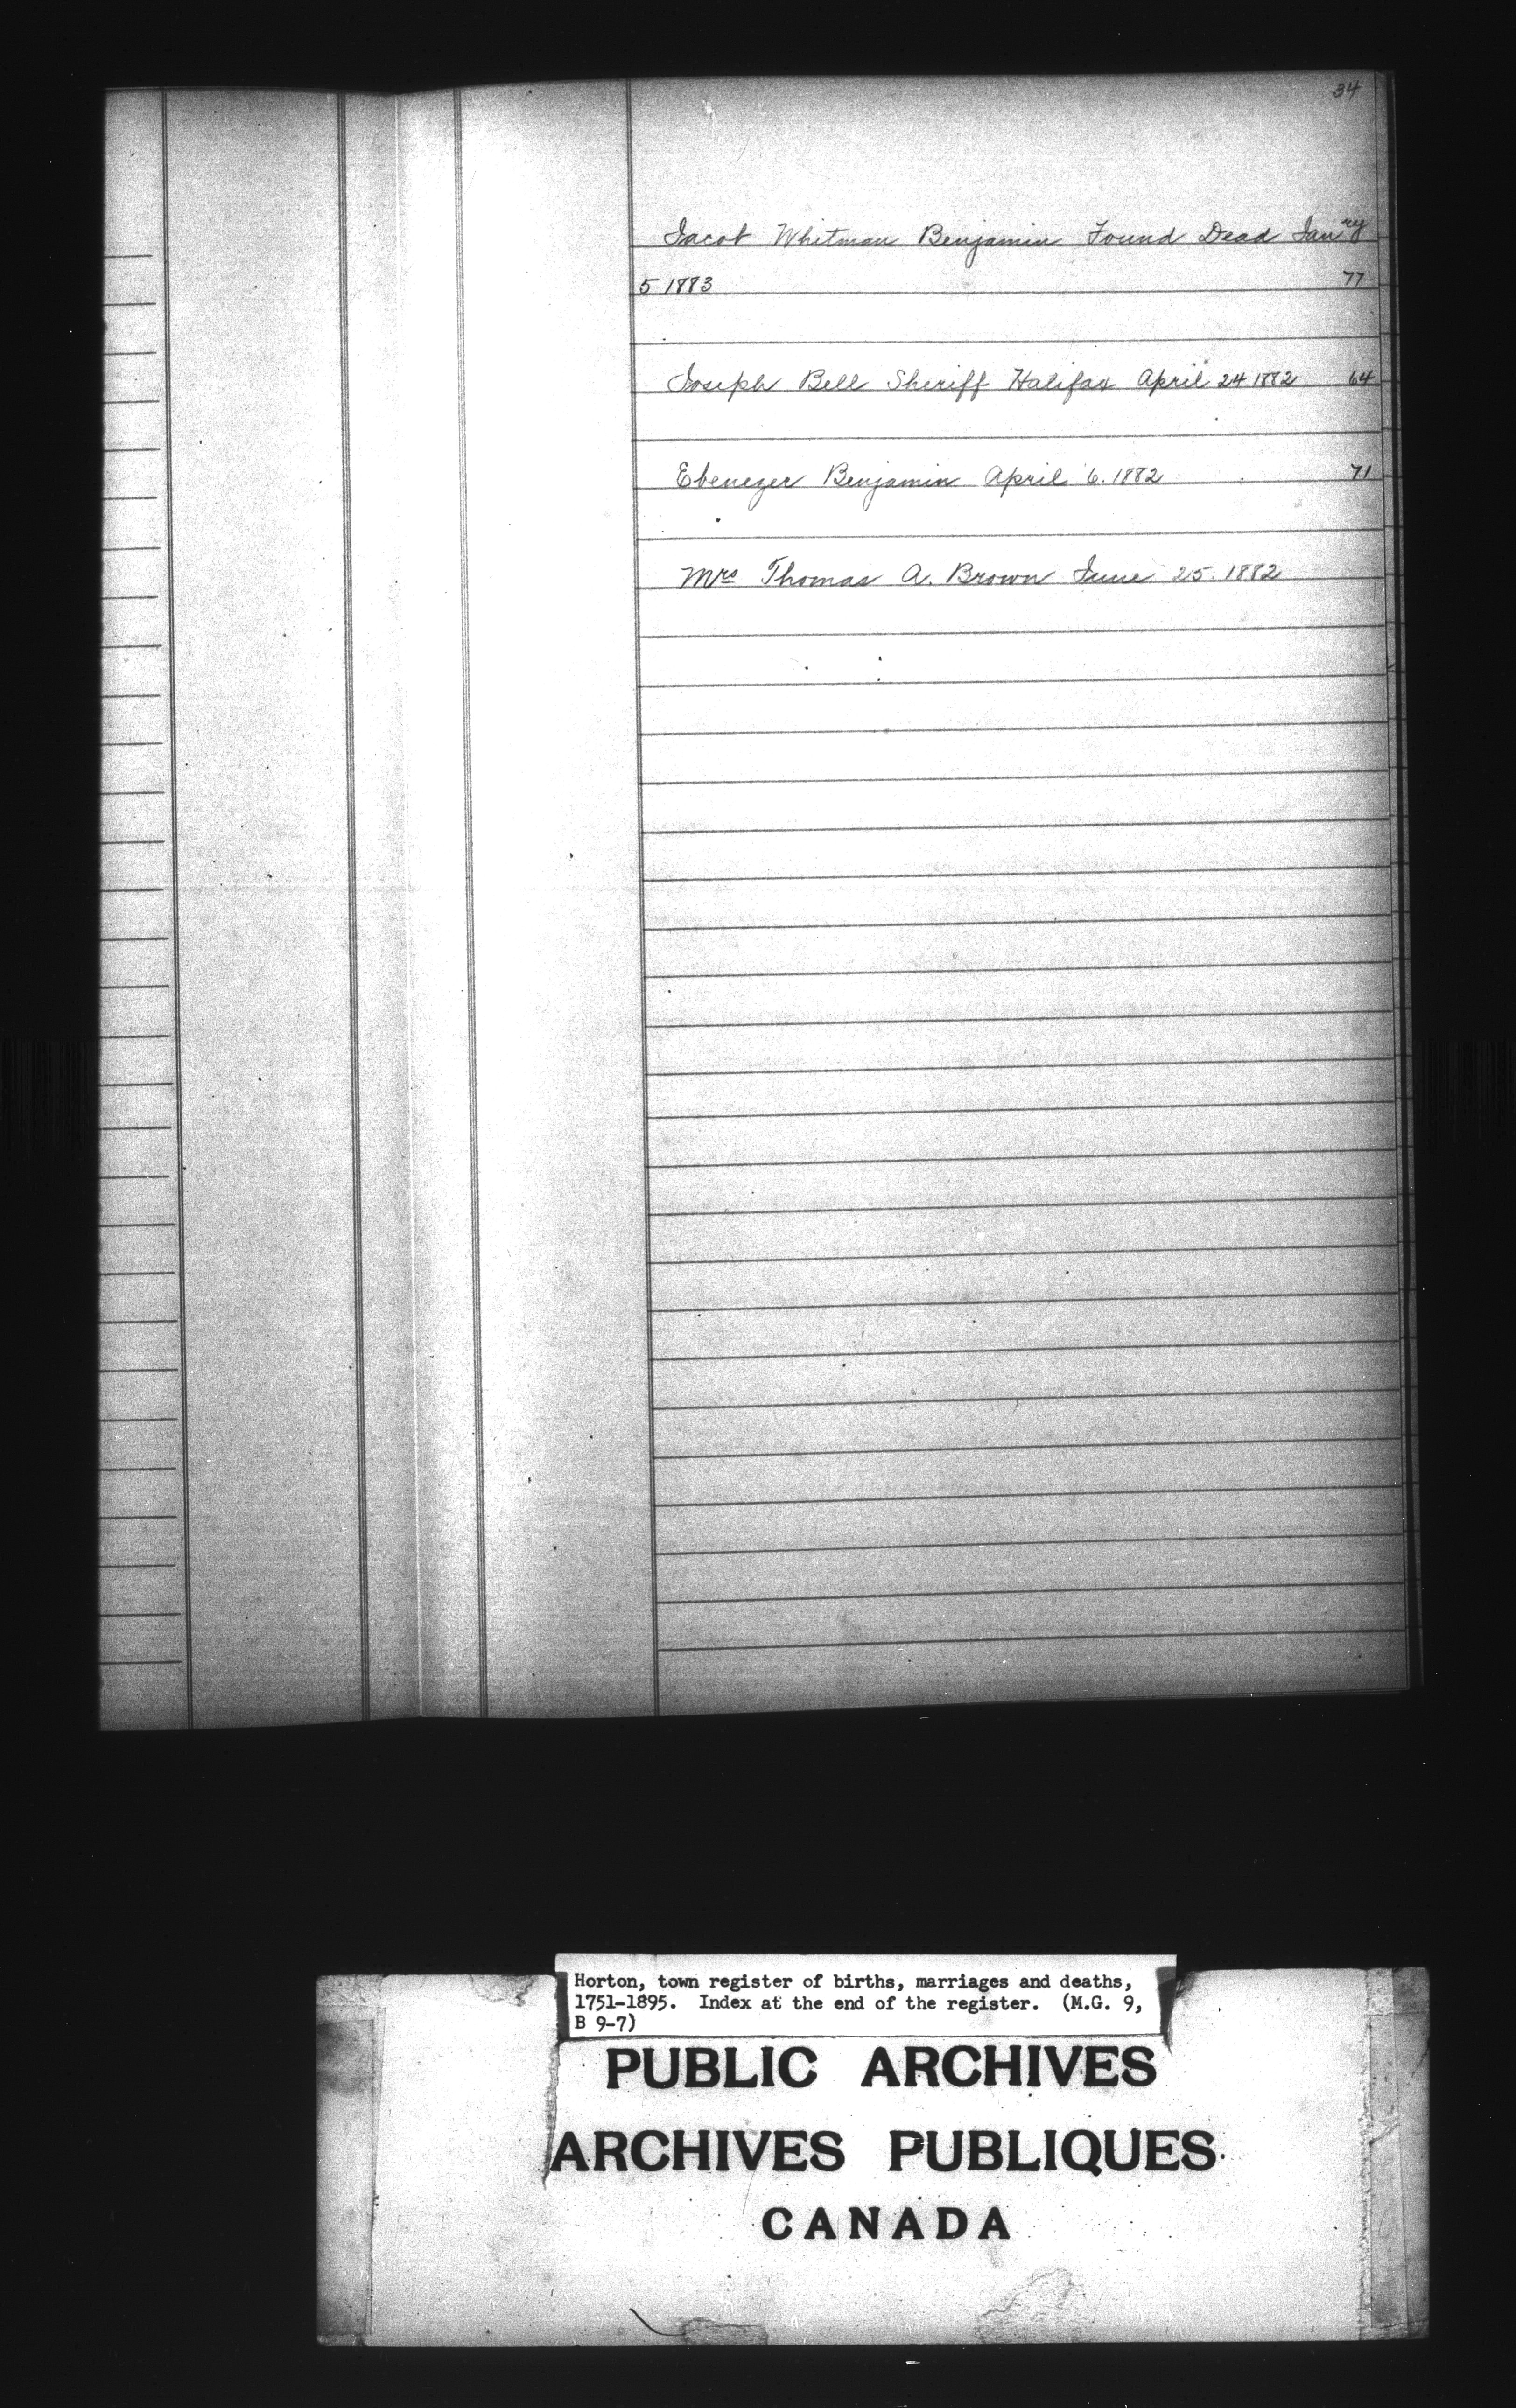 34
Jacob Whitman Benjamin Found Dead Janry
5 1883 77
Joseph Bell Sheriff Halifax April 24 1882 64
Ebenezer Benjamin April 6. 1882 71
Mrs Thomas A. Brown June 25. 1882
Horton, town register of births, marriages and deaths,
1751-1895. Index at the end of the register. (M.G. 9,
B 9-7)
PUBLIC ARCHIVES
ARCHIVES PUBLIQUES
CANADA